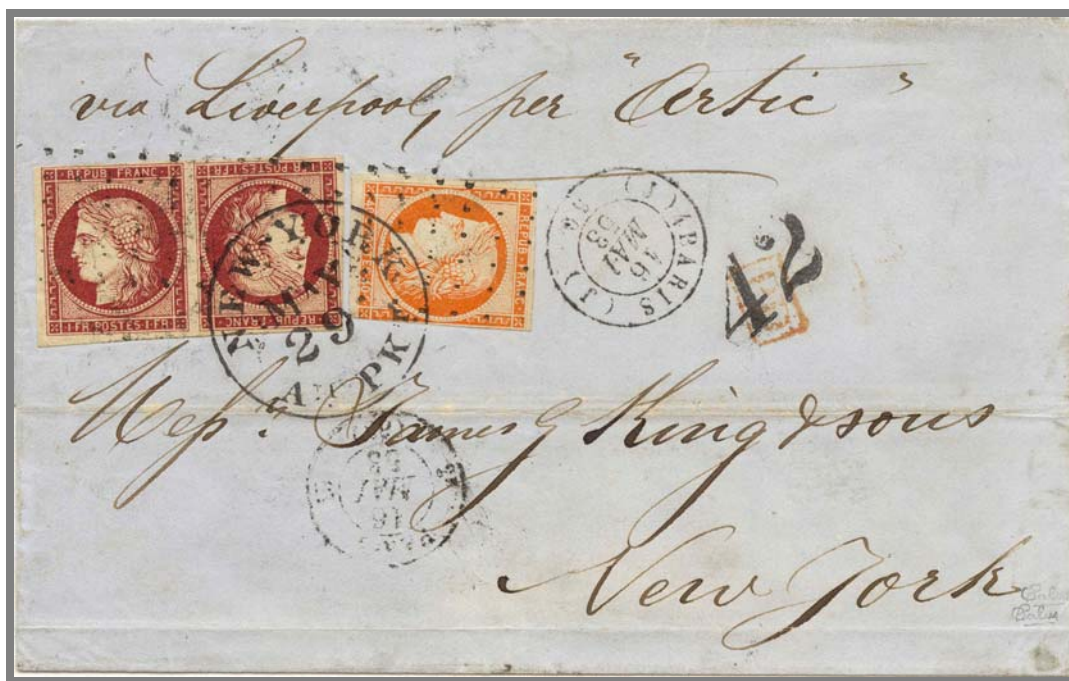 via Liverpool, per "Artic"
REPUB FRANC
1 FR POSTES 1 FR
1 FR POSTES 1 FR
REPUB FRANC
REPUB FRANC
NEW-YORK
MAY
29
AM. PKT.
PARIS (J)
16
MAI
53
42
Messrs. James G King & sons
New York